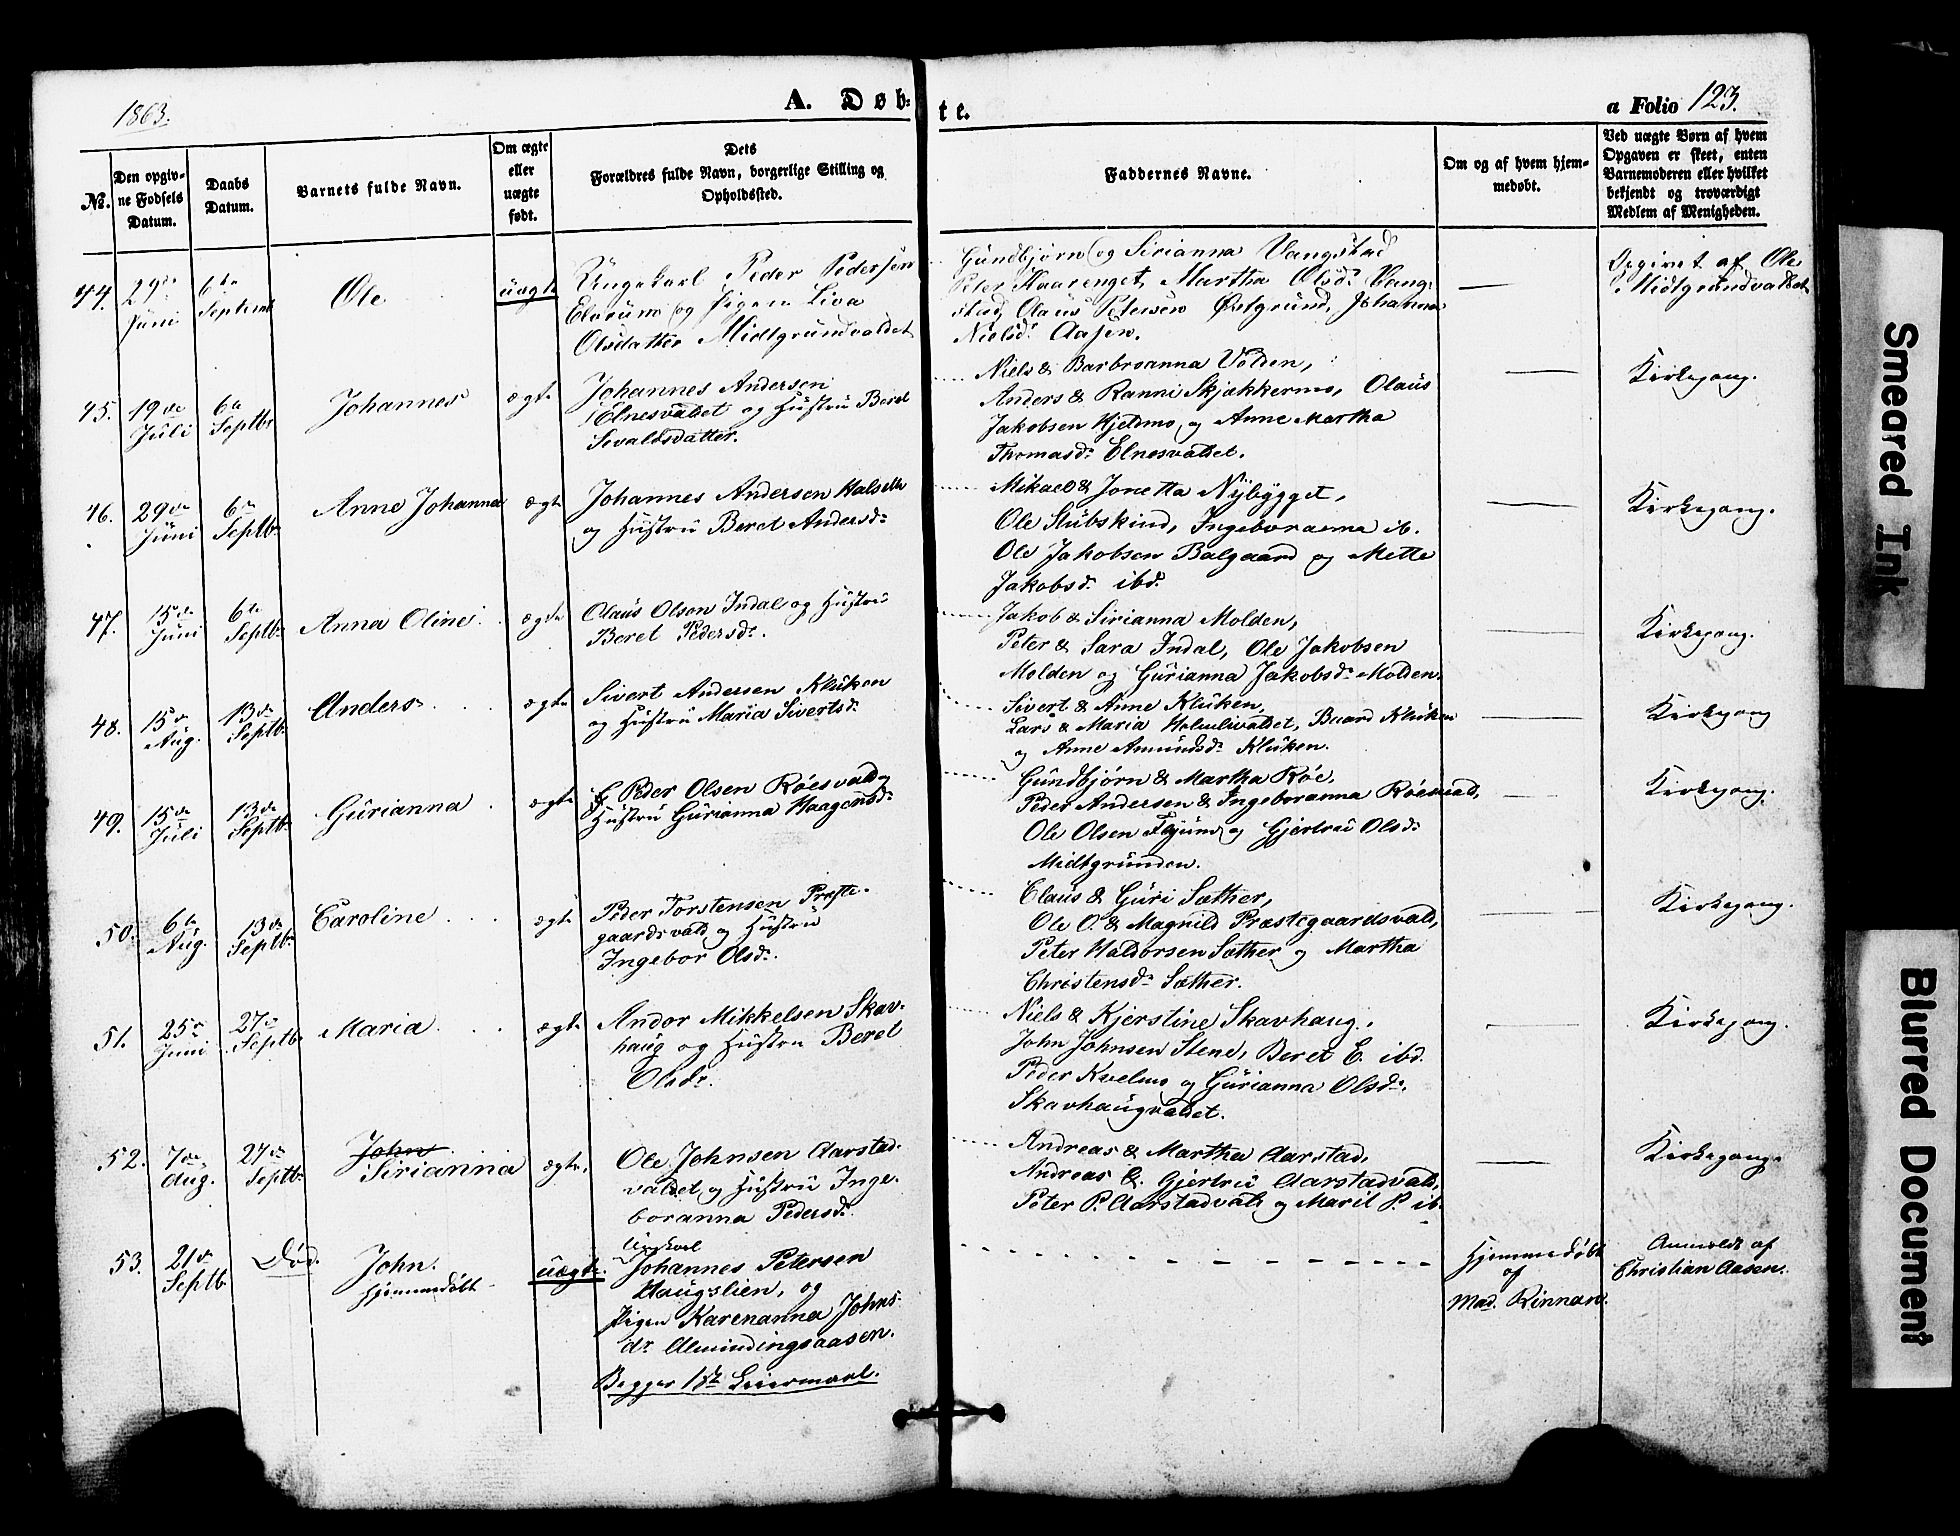 1863.
A. Døb-
te.
a Folio 123.
No.
Den opgiv-
ne Fødsels
Datum.
Daabs
Datum.
Barnets fulde Navn.
Om ægte
eller
uægte
født.
Dets
Forældres fulde Navn, borgerlige Stilling og
Opholdssted.
Faddernes Navne.
Om og af hvem hjem-
medøbt.
Ved uægte Børn af hvem
Opgaven er skeet, enten
Barnemoderen eller hvilket
bekjendt og troværdigt
Medlem af Menigheden.
44.
29de
Juni
6te
Septemb
Ole
uægte
Ungekarl Peder Pedersen
Elverum og Pigen Liva
Olsdatter Midtgrundvaldet
Gundbjørn og Sirianna Vangstad
Peter Haarenget, Martha Olsdr Vang-
stad, Claus Petersen Østgrund, Johanna
Nielsdr Aasen.
Opgivet af Ole
Midtgrundvaldet
45.
19de
Juli
6te
Septbr
Johannes
ægte
Johannes Andersen
Elnesvaldet og Hustru Beret
Sivaldsdatter.
Niels & Barbroanna Volden,
Anders & Ranni Skjækkermo, Olaus
Jakobsen Hjelmo og Anne Martha
Thomasdr Elnesvaldet.
Kirkegang.
46.
29de
Juni
6te
Septbr
Anne Johanna
ægte
Johannes Andersen Halseth
og Hustru Beret Andersdr
Mikael & Jonetta Nybygget,
Ole Stubskind, Ingeboranna ib.
Ole Jakobsen Balgaard og Mette
Jakobsdr ibd.
Kirkegang.
47.
15de
Juni
6te
Septbr
Anna Oline
ægte
Olaus Olsen Indal og Hustru
Beret Pedersdr.
Jakob & Sirianna Molden,
Peter & Sara Indal, Ole Jakobsen
Molden og Gurianna Jakobsdr Molden.
Kirkegang.
48.
15de
Aug.
13de
Septbr
Anders
ægte
Sivert Andersen Kluken
og Hustru Maria Sivertsdr
Sivert & Anne Kluken,
Lars & Maria Holmlivaldet, Baard Kluken
og Anne Amundsdr Kluken.
Kirkegang
49.
15de
Juli
13de
Septbr
Gurianna
ægte
Peder Olsen Röesvald og
Hustru Gurianna Haagensdr
Gundbjørn & Martha Röe,
Peder Andersen & Ingeboranna Röesvald,
Ole Olsen og Gjertrud Olsdr
Midtgrunden.
Kirkegang.
50.
6te
Aug.
13de
Septbr
Caroline
ægte
Peder Torstensen Præste-
gaardsvald og Hustru
Ingebor Olsdr.
Claus & Guri Sæther,
Ole O. & Magnild Præstegaardsvald,
Peter Haldorsen Sæther og Martha
Christensdr Sæther.
Kirkegang.
51.
25de
Juni
27de
Septbr
Maria
ægte
Andor Mikkelsen Skav-
haug og Hustru Beret
Olsdr.
Niels & Kjerstine Skavhaug,
John Johnsen Stene, Beret E. ibd.
Peder Kvelmo og Gurianna Olsdr.
Skavhaugvaldet.
Kirkegang.
52.
7de
Aug.
27de
Septbr
John
Sirianna
ægte.
Ole Johnsen Aarstad-
valdet og Hustru Inge-
boranna Pedersdr
Andreas & Martha Aarstad,
Andreas & Gjertrud Aarstadvald,
Peter P. Aarstadvald og Marit P. ib.
Kirkegang.
53.
21de
Septb
Død.
John.
Hjemmedøbt
uægte.
Ungkarl
Johannes Petersen
Haugslien, og
Pigen Karenanna Johns-
dr Almindingsaasen.
Begges 1ste Leiermaal.
Hjemmedøbt
af
Mad. Rinnan.
Anmeldt af
Christian Aasen.
Smeared Ink
Blurred Document